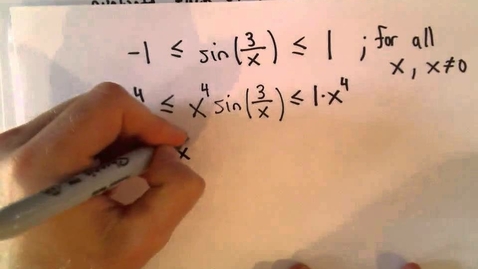 -1 ≤ sin(3/x) ≤ 1 ; for all
x, x≠0
4 ≤ x⁴ sin(3/x) ≤ 1·x⁴
x